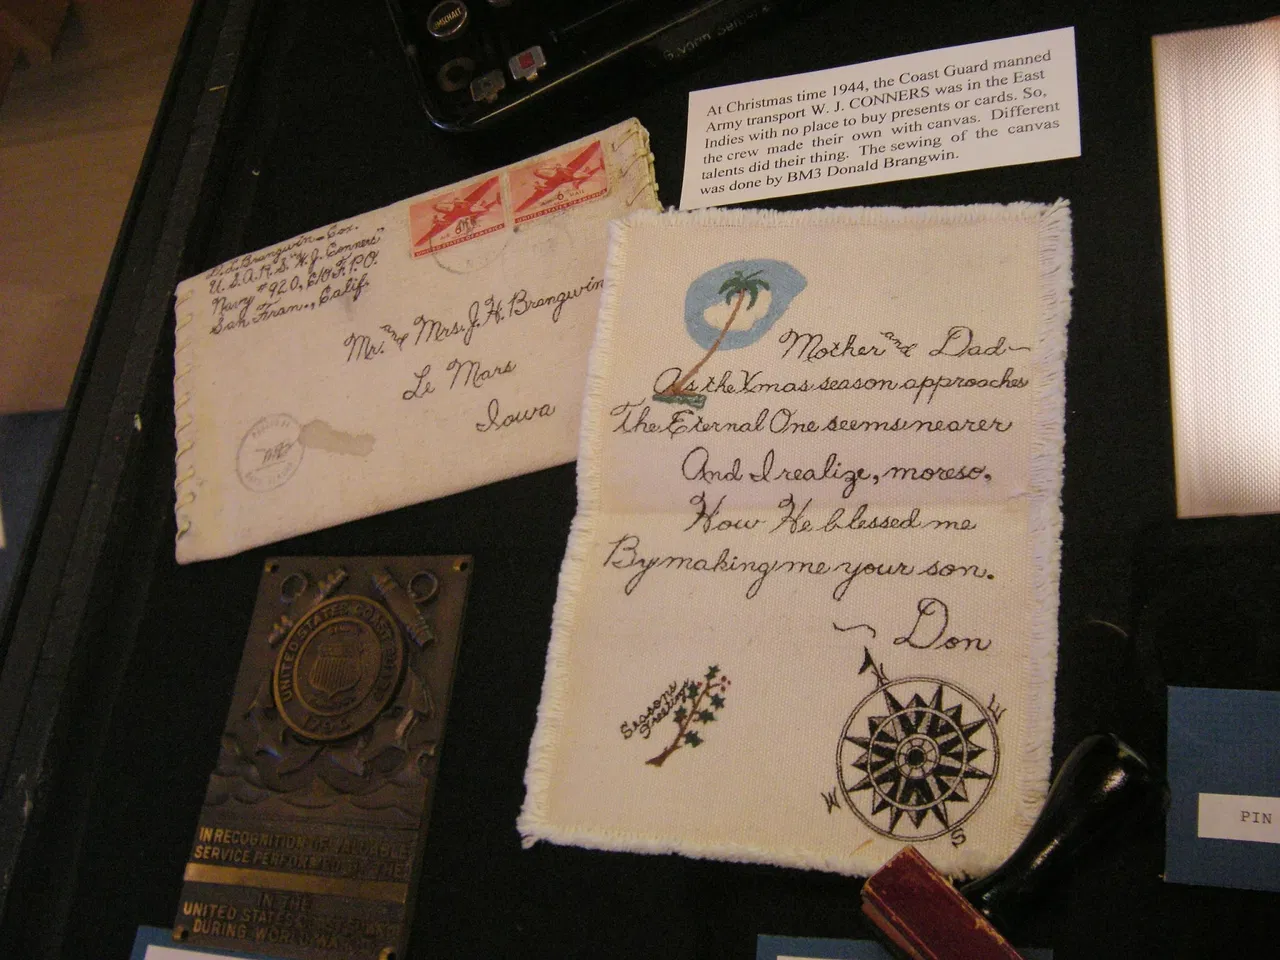 At Christmas time 1944, the Coast Guard manned
Army transport W. J. CONNERS was in the East
Indies with no place to buy presents or cards. So,
the crew made their own with canvas. Different
talents did their thing. The sewing of the canvas
was done by BM3 Donald Brangwin.
D. L. Brangwin - Cox.
U.S.A.R.S. "W. J. Conners"
Navy #920, C/O F.P.O.
San Fran., Calif.
6
UNITED STATES OF AMERICA
AIR MAIL
6
UNITED STATES OF AMERICA
Mr. and Mrs. J. H. Brangwin
Le Mars
Iowa
Mother and Dad—
As the Xmas season approaches
The Eternal One seems nearer
And I realize, moreso,
How He blessed me
By making me your son.
~ Don
Seasons
Greetings
N
E
W
S
UNITED STATES COAST GUARD
IN RECOGNITION OF VALUABLE
SERVICE PERFORMED
IN THE
UNITED STATES
DURING WORLD WAR
PIN